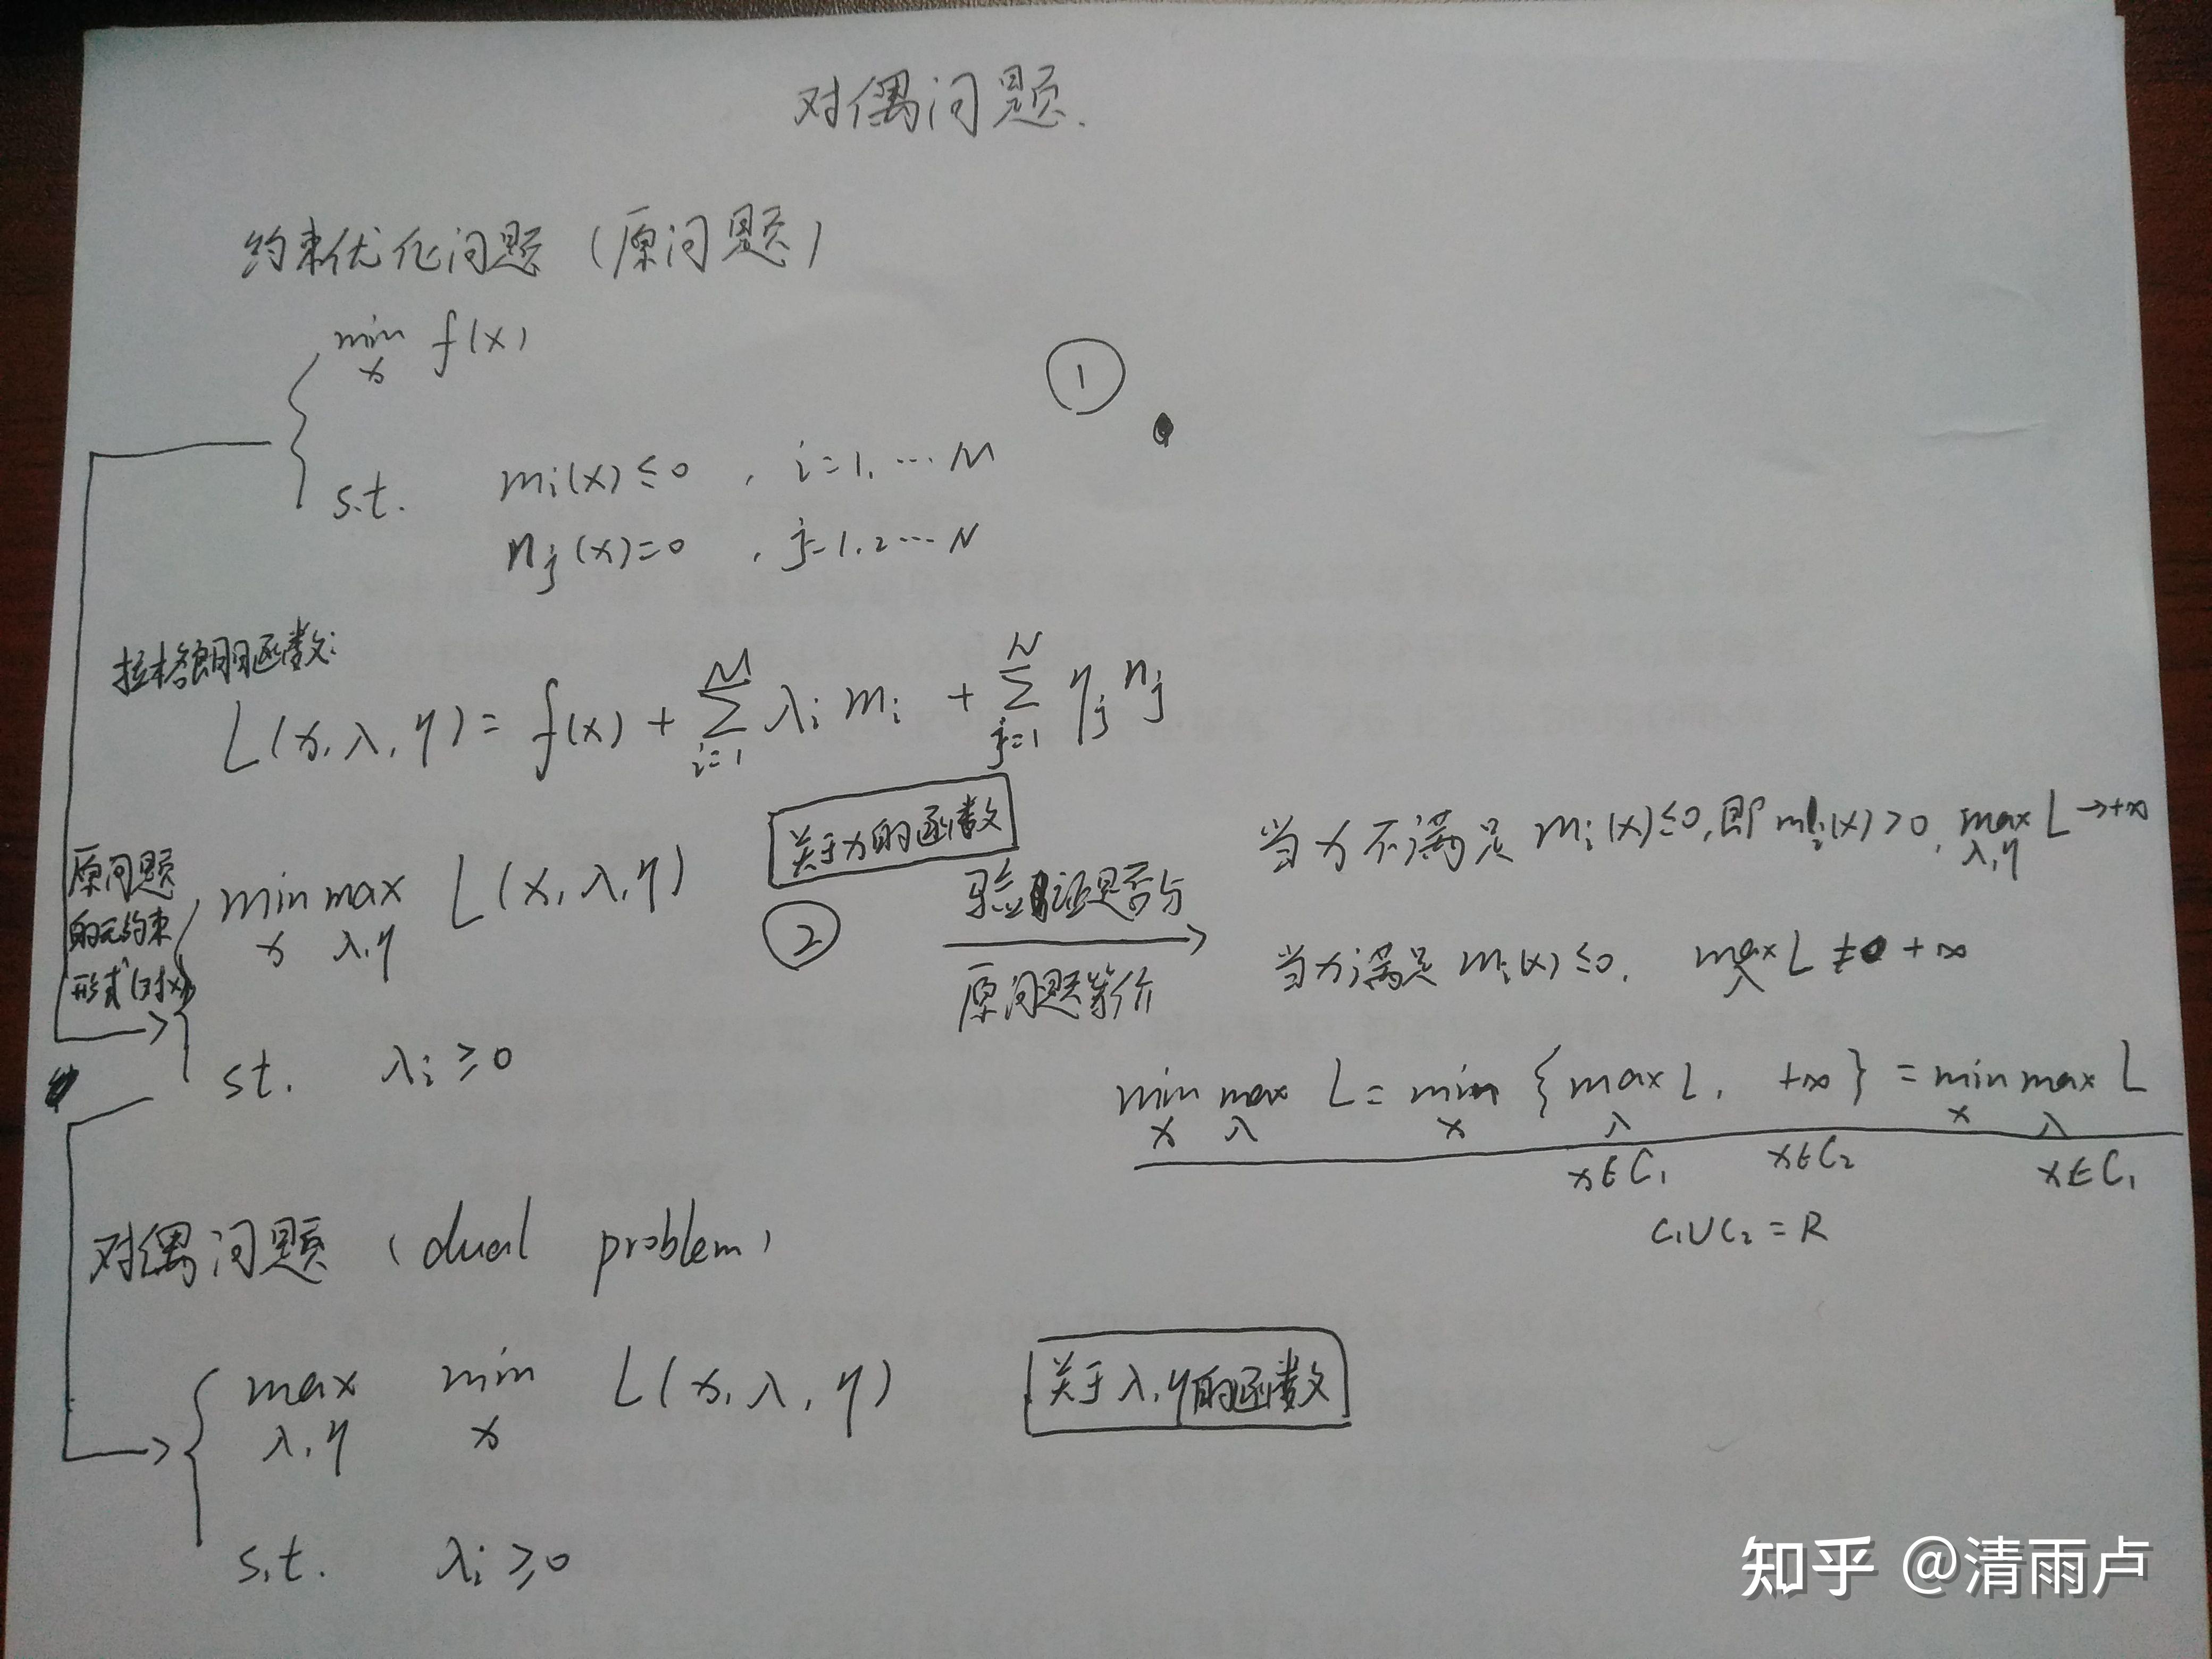 对偶问题.
约束优化问题（原问题）
min f(x)
x
①
s.t. mi(x)≤0 , i=1, ⋯ M
nj(x)=0 , j=1,2⋯ N
拉格朗日函数:
L(x,λ,η) = f(x) + ∑ λi mi + ∑ ηj nj
M N
i=1 j=1
原问题
的无约束
形式(对x)
min max L(x,λ,η)
x λ,η
关于x的函数
②
s.t. λi ≥0
验证是否与
原问题等价
当x不满足 mi(x)≤0,即mi(x)>0, max L→+∞
λ,η
当x满足 mi(x)≤0, max L ≠ +∞
λ
min max L = min { max L, +∞ } = min max L
x λ x λ x λ
x∈C₁ x∈C₂ x∈C₁
C₁∪C₂ = R
对偶问题 (dual problem)
max min L(x,λ,η)
λ,η x
关于λ,η的函数
s.t. λi ≥0
知乎 @清雨卢